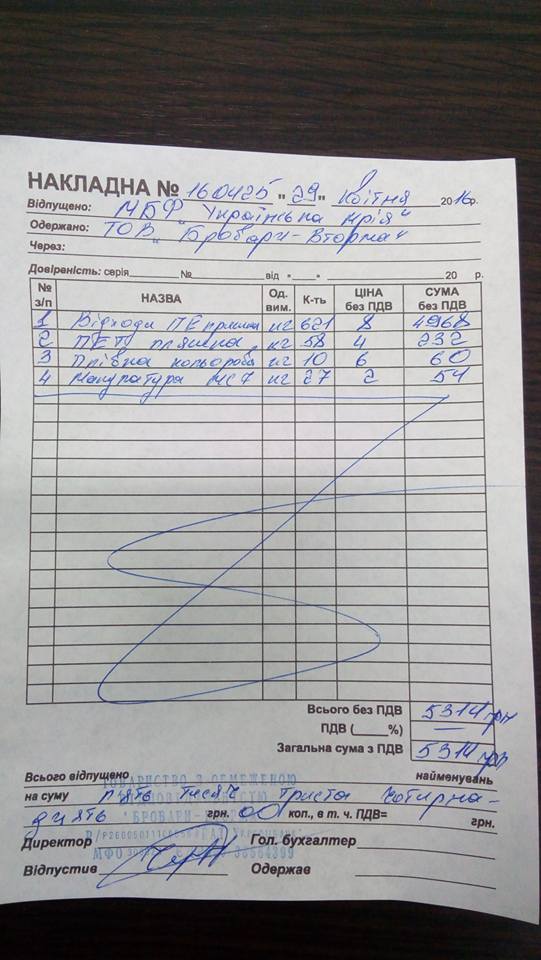 НАКЛАДНА № 160425 " 29 " квітня 2016р.
Відпущено: МБФ "Українська мрія"
Одержано: ТОВ "Бровари-Вторма"
Через:
Довіреність: серія № від " " 20 р.
№ з/п НАЗВА Од. вим. К-ть ЦІНА без ПДВ СУМА без ПДВ
1 Відходи ПЕ кг 621 8 4968
2 ПЕТ пляшка кг 58 4 232
3 Плівка кольорова кг 10 6 60
4 Макулатура МС7 кг 27 2 54
Всього без ПДВ 5314 грн
ПДВ ( %) —
Загальна сума з ПДВ 5314 грн
Всього відпущено найменувань
ТОВАРИСТВО З ОБМЕЖЕНОЮ
на суму п'ять тисяч триста чотирна-
дцять грн. 00 коп., в т. ч. ПДВ= грн.
Директор Гол. бухгалтер
МФО
Відпустив Одержав